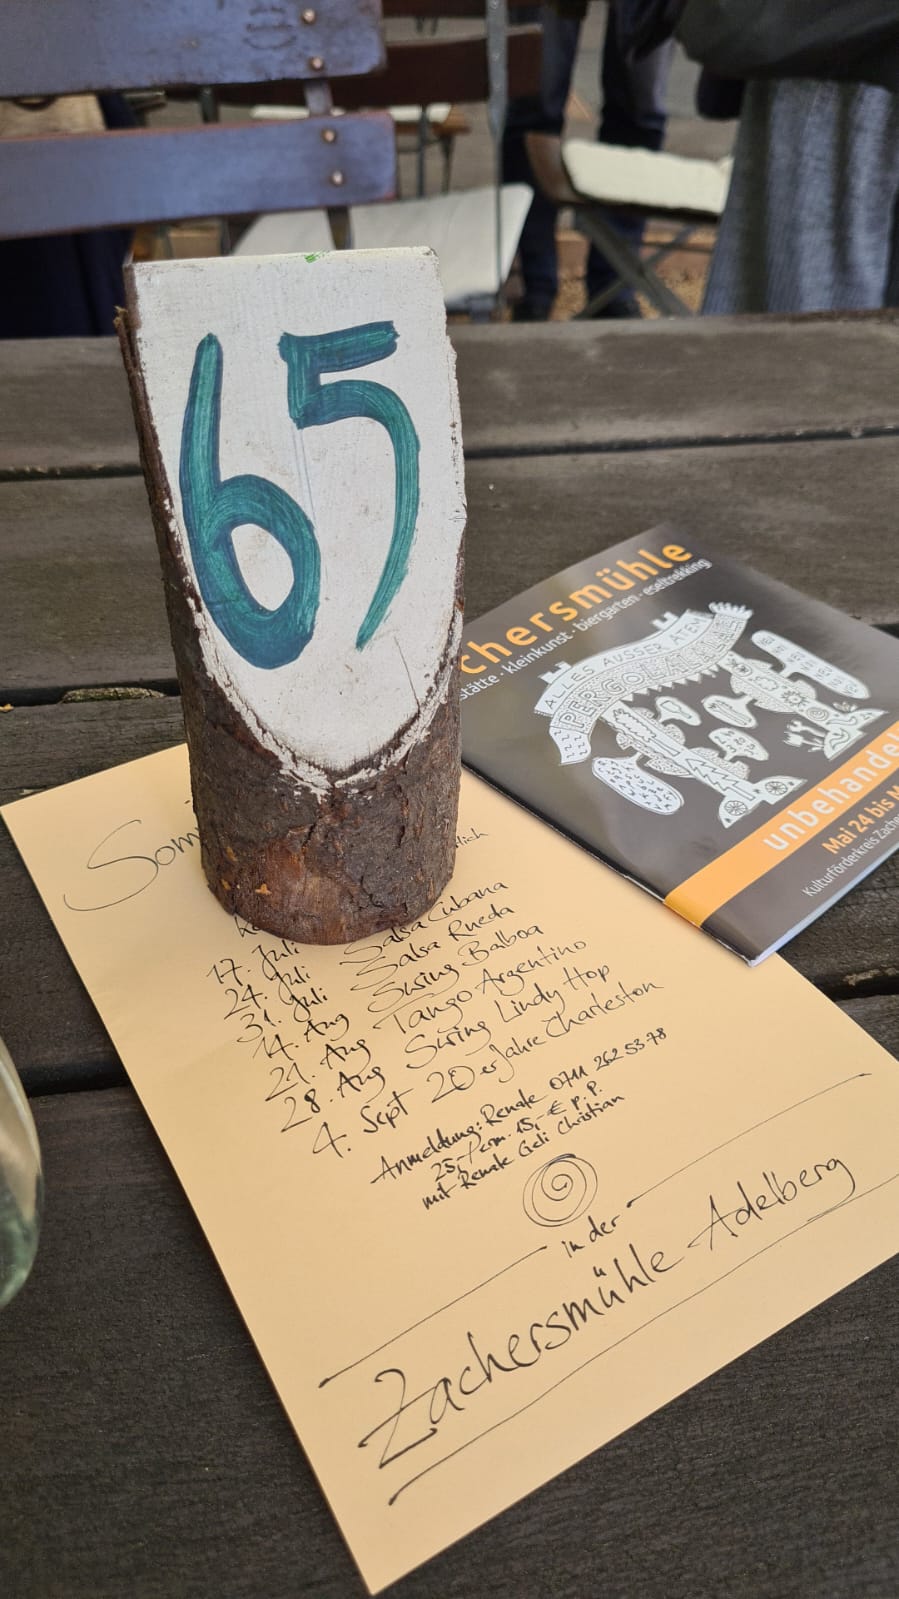 65
chersmühle
stätte · kleinkunst · biergarten · eseltrekking
ALLES AUSSER ATEM
unbehandel
Mai 24 bis M
Kulturförderkreis Zache
Som
lich
17. Juli Salsa Cubana
24. Juli Salsa Rueda
31. Juli Swing Balboa
14. Aug Tango Argentino
21. Aug Swing Lindy Hop
28. Aug 20er Jahre Charleston
4. Sept
Anmeldung: Renate 0711 262 53 78
25,-/erm. 15,- € p.P.
mit Renate Geli Christian
in der
Zachersmühle Adelberg